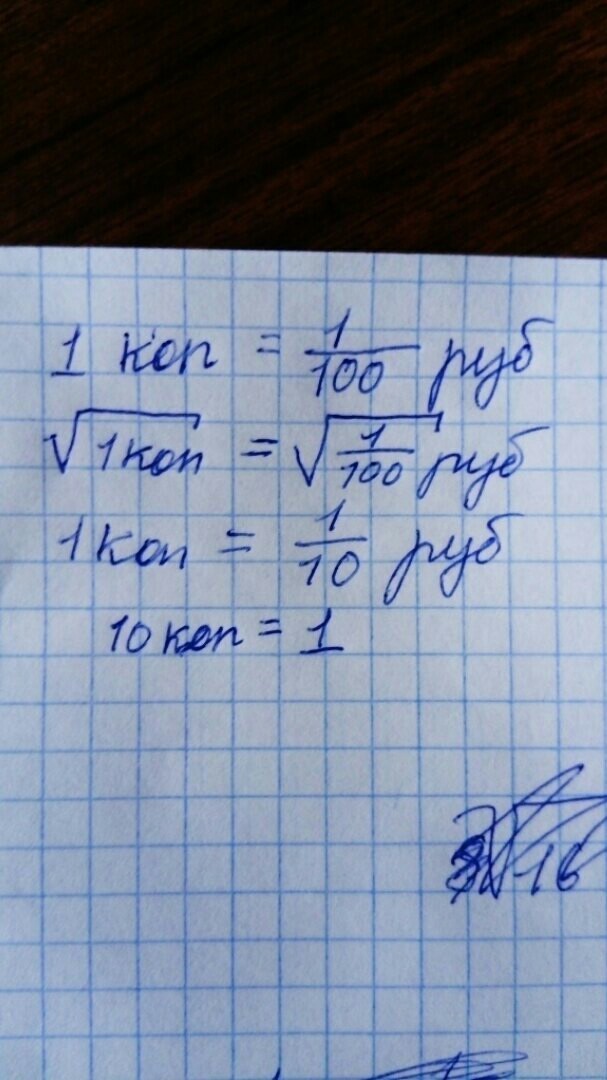 1 коп = 1/100 руб
√1коп = √1/100 руб
1коп = 1/10 руб
10коп = 1
16